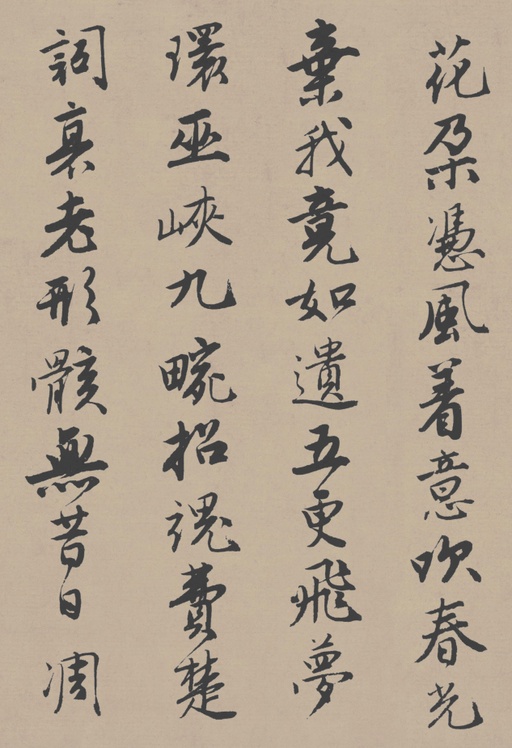 花朵憑風着意吹春光
棄我竟如遺五更飛夢
環巫峽九畹招魂費楚
詞衰老形骸無昔日凋